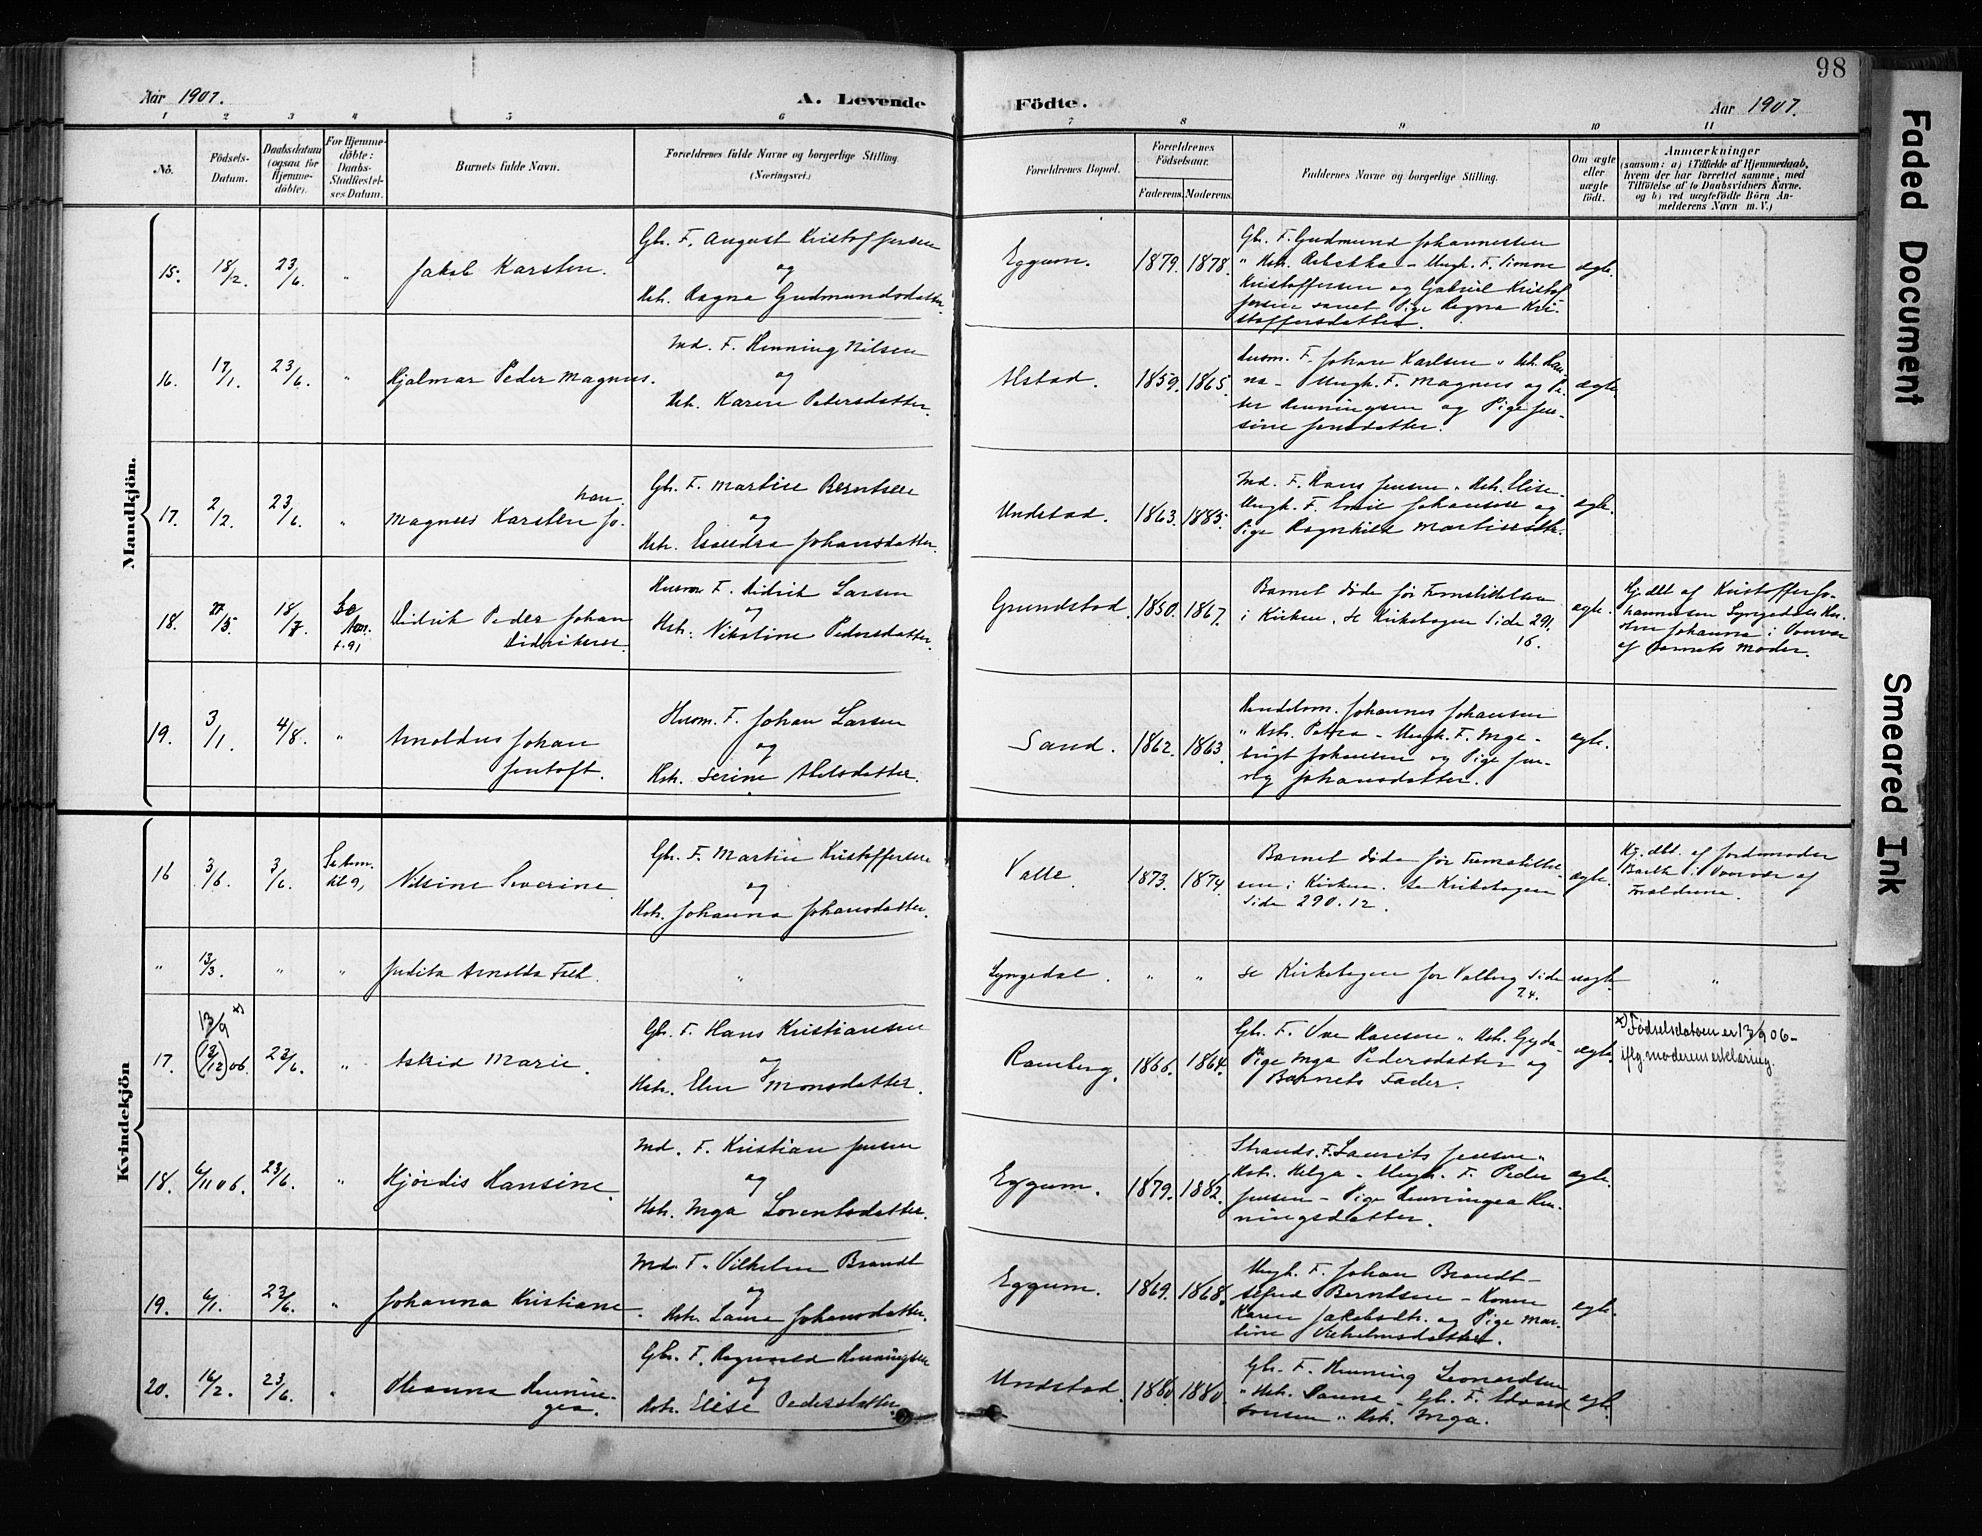 98
Aar 1907.
A. Levende
Födte.
Aar 1907.
1 2 3 4 5 6 7 8 9 10 11
No.
Födsels-
Datum.
Daabsdatum
(ogsaa for
Hjemme-
döbte).
For Hjemme-
döbte:
Daabs-
Stadfæstel-
ses Datum.
Barnets fulde Navn.
Forældrenes fulde Navne og borgerlige Stilling.
(Næringsvei.)
Forældrenes Bopæl.
Forældrenes
Födselsaar.
Faderens. Moderens.
Faddernes Navne og borgerlige Stilling.
Om ægte
eller
uægte
födt.
Anmærkninger
(saasom: a) i Tilfælde af Hjemmedaab,
hvem der har forrettet samme, med
Tilföielse af to Daabsvidners Navne,
og b) ved uægtefödte Börn An-
melderens Navn m. V.)
Mandkjön.
15. 18/2. 23/6. " Jakob Karsten.
Gbr. F. August Kristoffersen
og
Hstr. Ragna Gudmundsdatter.
Eggum. 1879. 1878.
Gbr. F. Gudmund Johannessen
" Hstr. Rebekka - Ungk. F. Simon
Kristoffersen og Gabriel Kristof
fersen samt Pige Ragna Kri-
stoffersdatter.
ægte.
16. 17/1. 23/6. " Hjalmar Peder Magnus.
Ind. F. Henning Nilsen
og
Hstr. Karen Pedersdatter.
Alstad. 1859. 1865.
Husm. F. Johan Karlsen " Hstr. Han-
na - Ungk. F. Magnus og Pe-
ter Henningsen og Pige Jen-
sine Jensdatter.
ægte.
17. 2/2. 23/6. " Magnus Karsten Jo-
han.
Gbr. F. Martin Berntsen
og
Hstr. Johansdatter.
Undstad. 1863. 1883.
Ind. F. Hans Jensen " Hstr. Elise-
Ungk. F. Emil Johansen og
Pige Ragnhild
ægte.
18. 27/5. 18/7. Didrik Peder Johan
Didriksen.
Husm. F. Didrik Larsen
og
Hstr. Nikoline Pedersdatter.
Grundstad. 1850. 1867.
Barnet døde før Fremstillelsen
i Kirken. Se Kirkebogen Side 291.
16.
ægte.
Hj. dbt. af Kristoffer Jo-
hannesen Lyngedal
Johanna i Nærvær
af Barnets Moder.
19. 3/1. 4/8. " Arnoldus Johan
Jentoft.
Husm. F. Johan Larsen
og
Hstr. Serine
Sand. 1862. 1863.
Johannes Johansen
" Hstr. Petra - Ungk. F. Inge-
brigt Johansen og Pige Jen-
ny Johansdatter.
ægte.
Kvindekjön
16 3/6. 3/6. Se Anm.
til 9, Nilsine Severine.
Gbr. F. Martin Kristoffersen
og
Hstr. Johanna Johansdatter.
Valle. 1873. 1874.
Barnet døde før Fremstillel-
sen i Kirken. Se Kirkebogen
Side 290. 12.
ægte.
Hj. dbt. af Jordmoder
i Nærvær af
Forældrene.
" 13/3. " " Judita Arnolda "
Lyngedal. " "
Se Kirkebogen for Valberg Side
24.
uægte. "
17. 13/9 x) (13/12) 06. 23/6. " Astrid Marie.
Gbr. F. Hans Kristiansen
og
Hstr. Elen Monsdatter.
Ramberg. 1866. 1864.
Gbr. F. Hansen " Hstr. Gyda-
Pige Inga Pedersdatter og
Barnets Fader.
ægte.
x) Fødselsdatoen er 13/9 06-
iflg. moderens erklæring.
18. 6/11 06. 23/6. " Hjørdis Hansine.
Ind. F. Kristian Jensen
og
Hstr. Inga Lorentsdatter.
Eggum. 1879. 1882.
Strands. F. Laurits Jensen "
Hstr. Helga - Ungk. F. Peder
Jensen - Pige Henningea Hen-
ningsdatter.
ægte.
19. 6/1. 23/6. " Johanna Kristiane.
Ind. F. Vilhelm Brandt
og
Hstr. Laura Johansdatter.
Eggum. 1869. 1868.
Ungk. F. Johan Brandt-
Berntsen - Konen
Karen Jakobsdtr. og Pige Mar-
tine Vilhelmsdatter.
ægte.
20. 16/2. 23/6. " Henning-
gea.
Gbr. F. Ragnvald Henningsen
og
Hstr. Elise Pedersdatter.
Undstad. 1880. 1880.
Gbr. F. Henning Leonardsen
" Hstr. - Gbr. F. Edvard
" Hstr. Inga.
ægte.
Faded Document
Smeared Ink